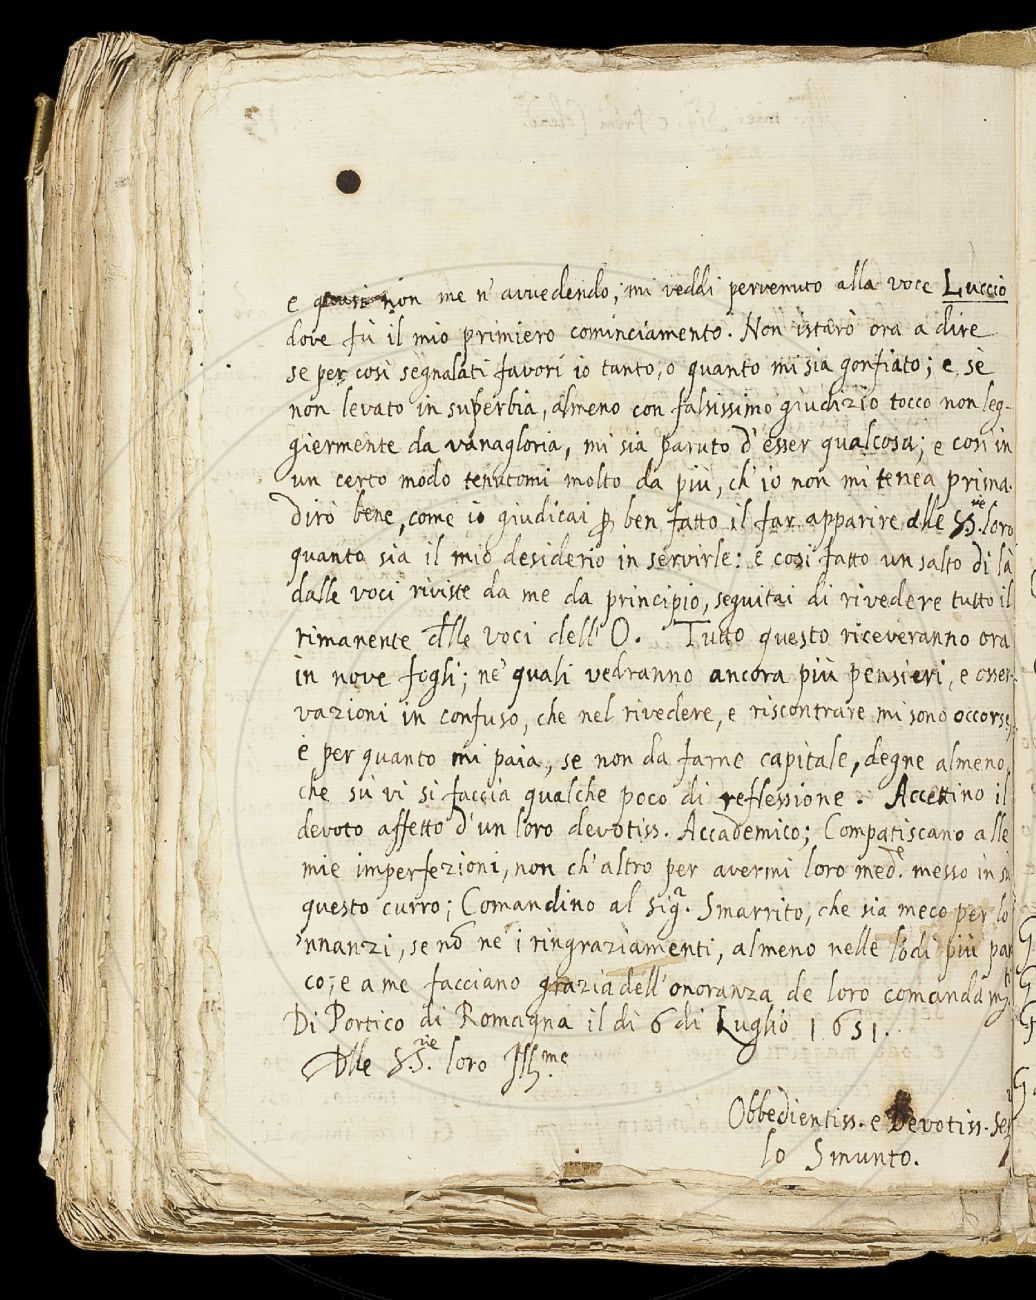 e quasi non me n' avvedendo, mi veddi pervenuto alla voce Luccio
dove fù il mio primiero cominciamento. Non istarò ora a dire
se per così segnalati favori io tanto, o quanto mi sia gonfiato; e, sè
non levato in superbia, almeno con falsissimo giudizio tocco non leg-
giermente da vanagloria, mi sia paruto d' esser qualcosa; e così in
un certo modo tenutomi molto da più, ch' io non mi tenea prima.
Dirò bene, come io giudicai ꝑ ben fatto il far apparire alle SS.rie loro
quanto sia il mio desiderio in servirle: e così fatto un salto di là
dalle voci riviste da me da principio, seguitai di rivedere tutto il
rimanente dlle voci dell' O. Tutto questo riceveranno ora
in nove fogli; ne' quali vedranno ancora più pensieri, e osser-
vazioni in confuso, che nel rivedere, e riscontrare mi sono occorse,
e per quanto mi paia, se non da farne capitale, degne almeno,
che sù vi si faccia qualche poco di reflessione. Accettino il
devoto affetto d' un loro devotiss. Accademico; Compatiscano alle
mie imperfezioni, non ch' altro per avermi loro med.e messo in su
questo curro; Comandino al Sig.r Smarrito, che sia meco per lo
'nnanzi, se nō ne' i ringraziamenti, almeno nelle lodi più par
co; e a me facciano grazia dell' onoranza de loro comandam.ti
Di Portico di Romagna il dì 6 di Luglio 1651.
Dlle SS.rie loro Ill.me
Obbedientiss. e Devotiss. Ser
lo Smunto.